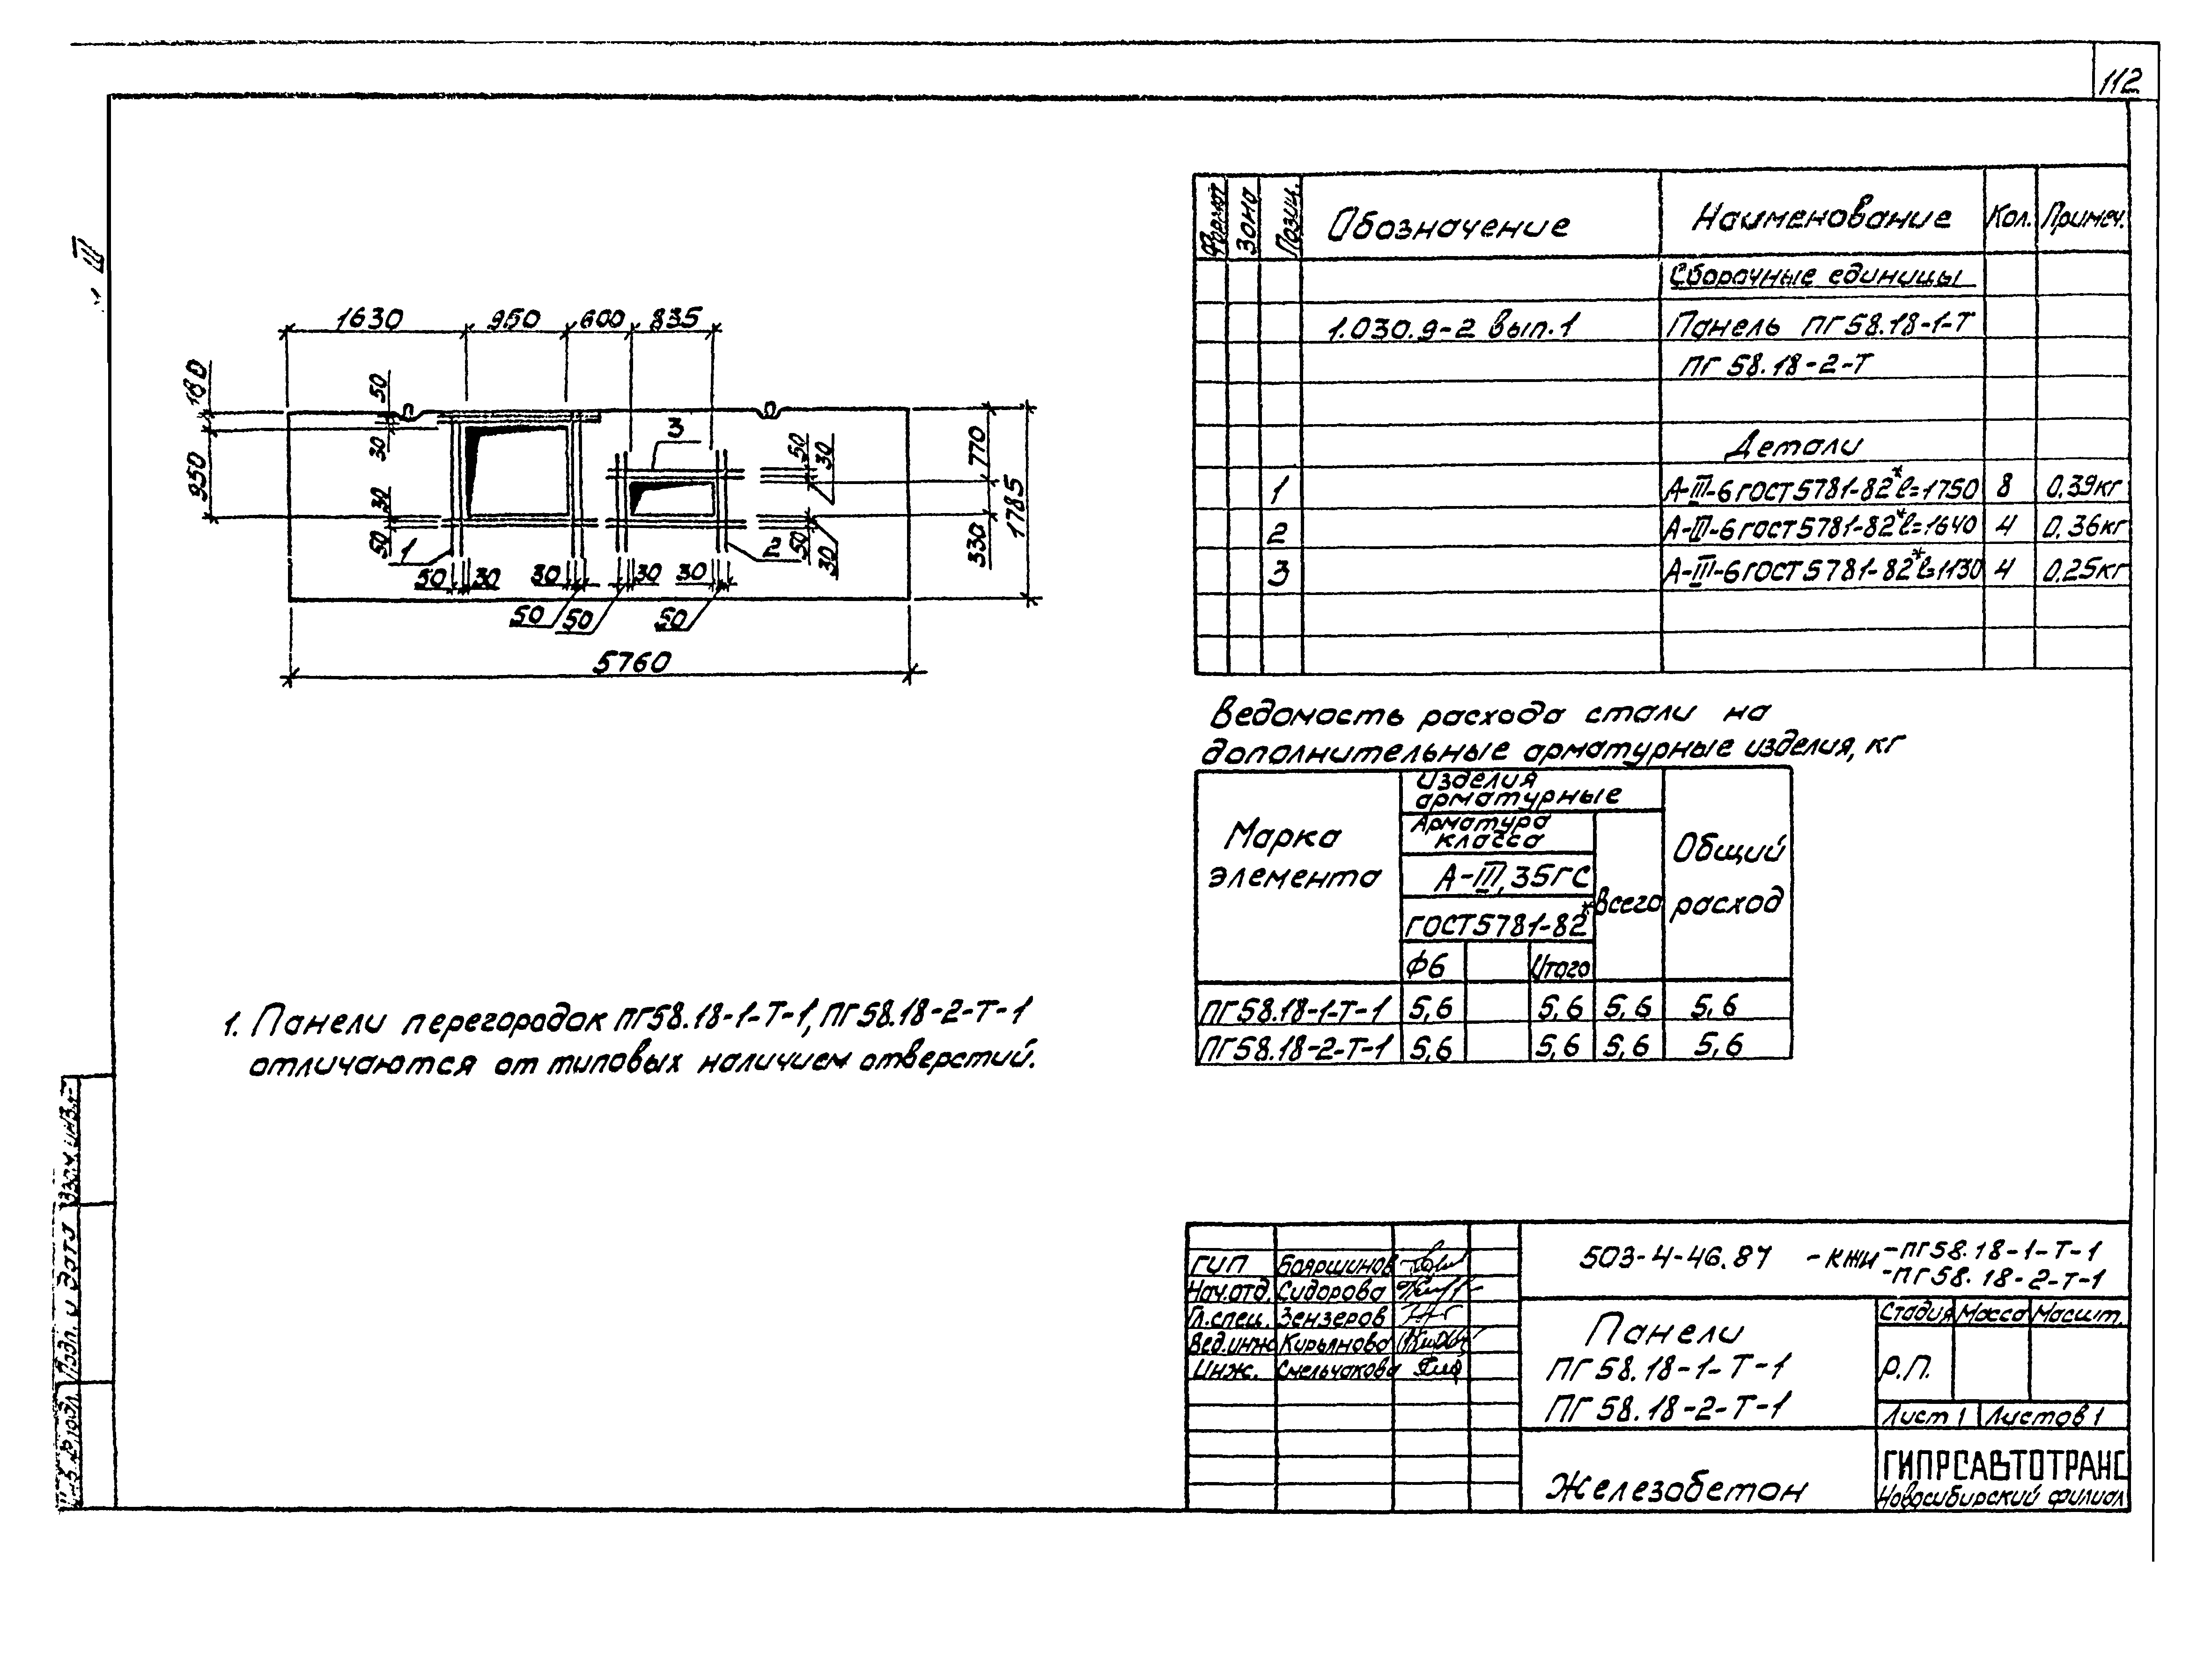 112
1630 950 600 835
180
950
50
30
30
50
3
1
2
50
30
50
30
770
330
1785
50 30 30 30 30
50 50 50
5760
Формат Зона Позиц. Обозначение Наименование Кол. Примеч.
Сборочные единицы
1.030.9-2 вып.1 Панель ПГ58.18-1-Т
ПГ 58.18-2-Т
Детали
1 А-III-6 ГОСТ 5781-82* ℓ=1750 8 0,39кг
2 А-III-6 ГОСТ 5781-82* ℓ=1640 4 0,36кг
3 А-III-6 ГОСТ 5781-82* ℓ=1130 4 0,25кг
Ведомость расхода стали на
дополнительные арматурные изделия, кг
Марка элемента
Изделия арматурные
Арматура класса
А-III, 35ГС
ГОСТ 5781-82*
Ф6 Итого
Всего
Общий расход
ПГ58.18-1-Т-1 5,6 5,6 5,6 5,6
ПГ58.18-2-Т-1 5,6 5,6 5,6 5,6
1. Панели перегородок ПГ58.18-1-Т-1, ПГ58.18-2-Т-1
отличаются от типовых наличием отверстий.
Подп. и дата
ГИП Бояршинов
Нач.отд. Сидорова
Гл.спец. Зензеров
Вед.инж Кирьянова
Инж. Смельчакова
503-4-46.87 -КЖИ -ПГ58.18-1-Т-1
-ПГ58.18-2-Т-1
Панели
ПГ 58.18-1-Т-1
ПГ 58.18-2-Т-1
Стадия Масса Масшт.
Р.П.
Лист 1 Листов 1
Железобетон
ГИПРОАВТОТРАНС
Новосибирский филиал